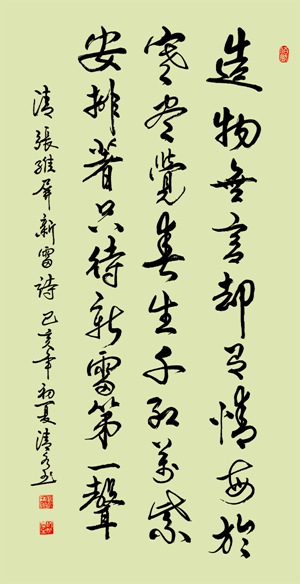 造物無言却有情每於
寒盡覺春生千紅萬紫
安排著只待新雷第一聲
清張維屏新雷詩己亥年初夏清